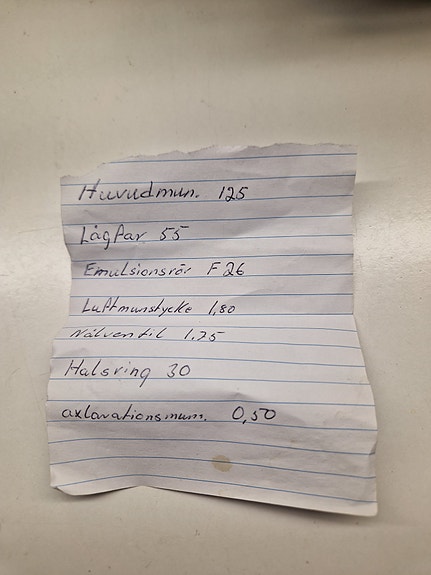 Huvudmun. 125
Lågfar 55
Emulsionsrör F26
Luftmunstycke 1,80
Nålventil 1.75
Halsring 30
axlarationsmum. 0,50